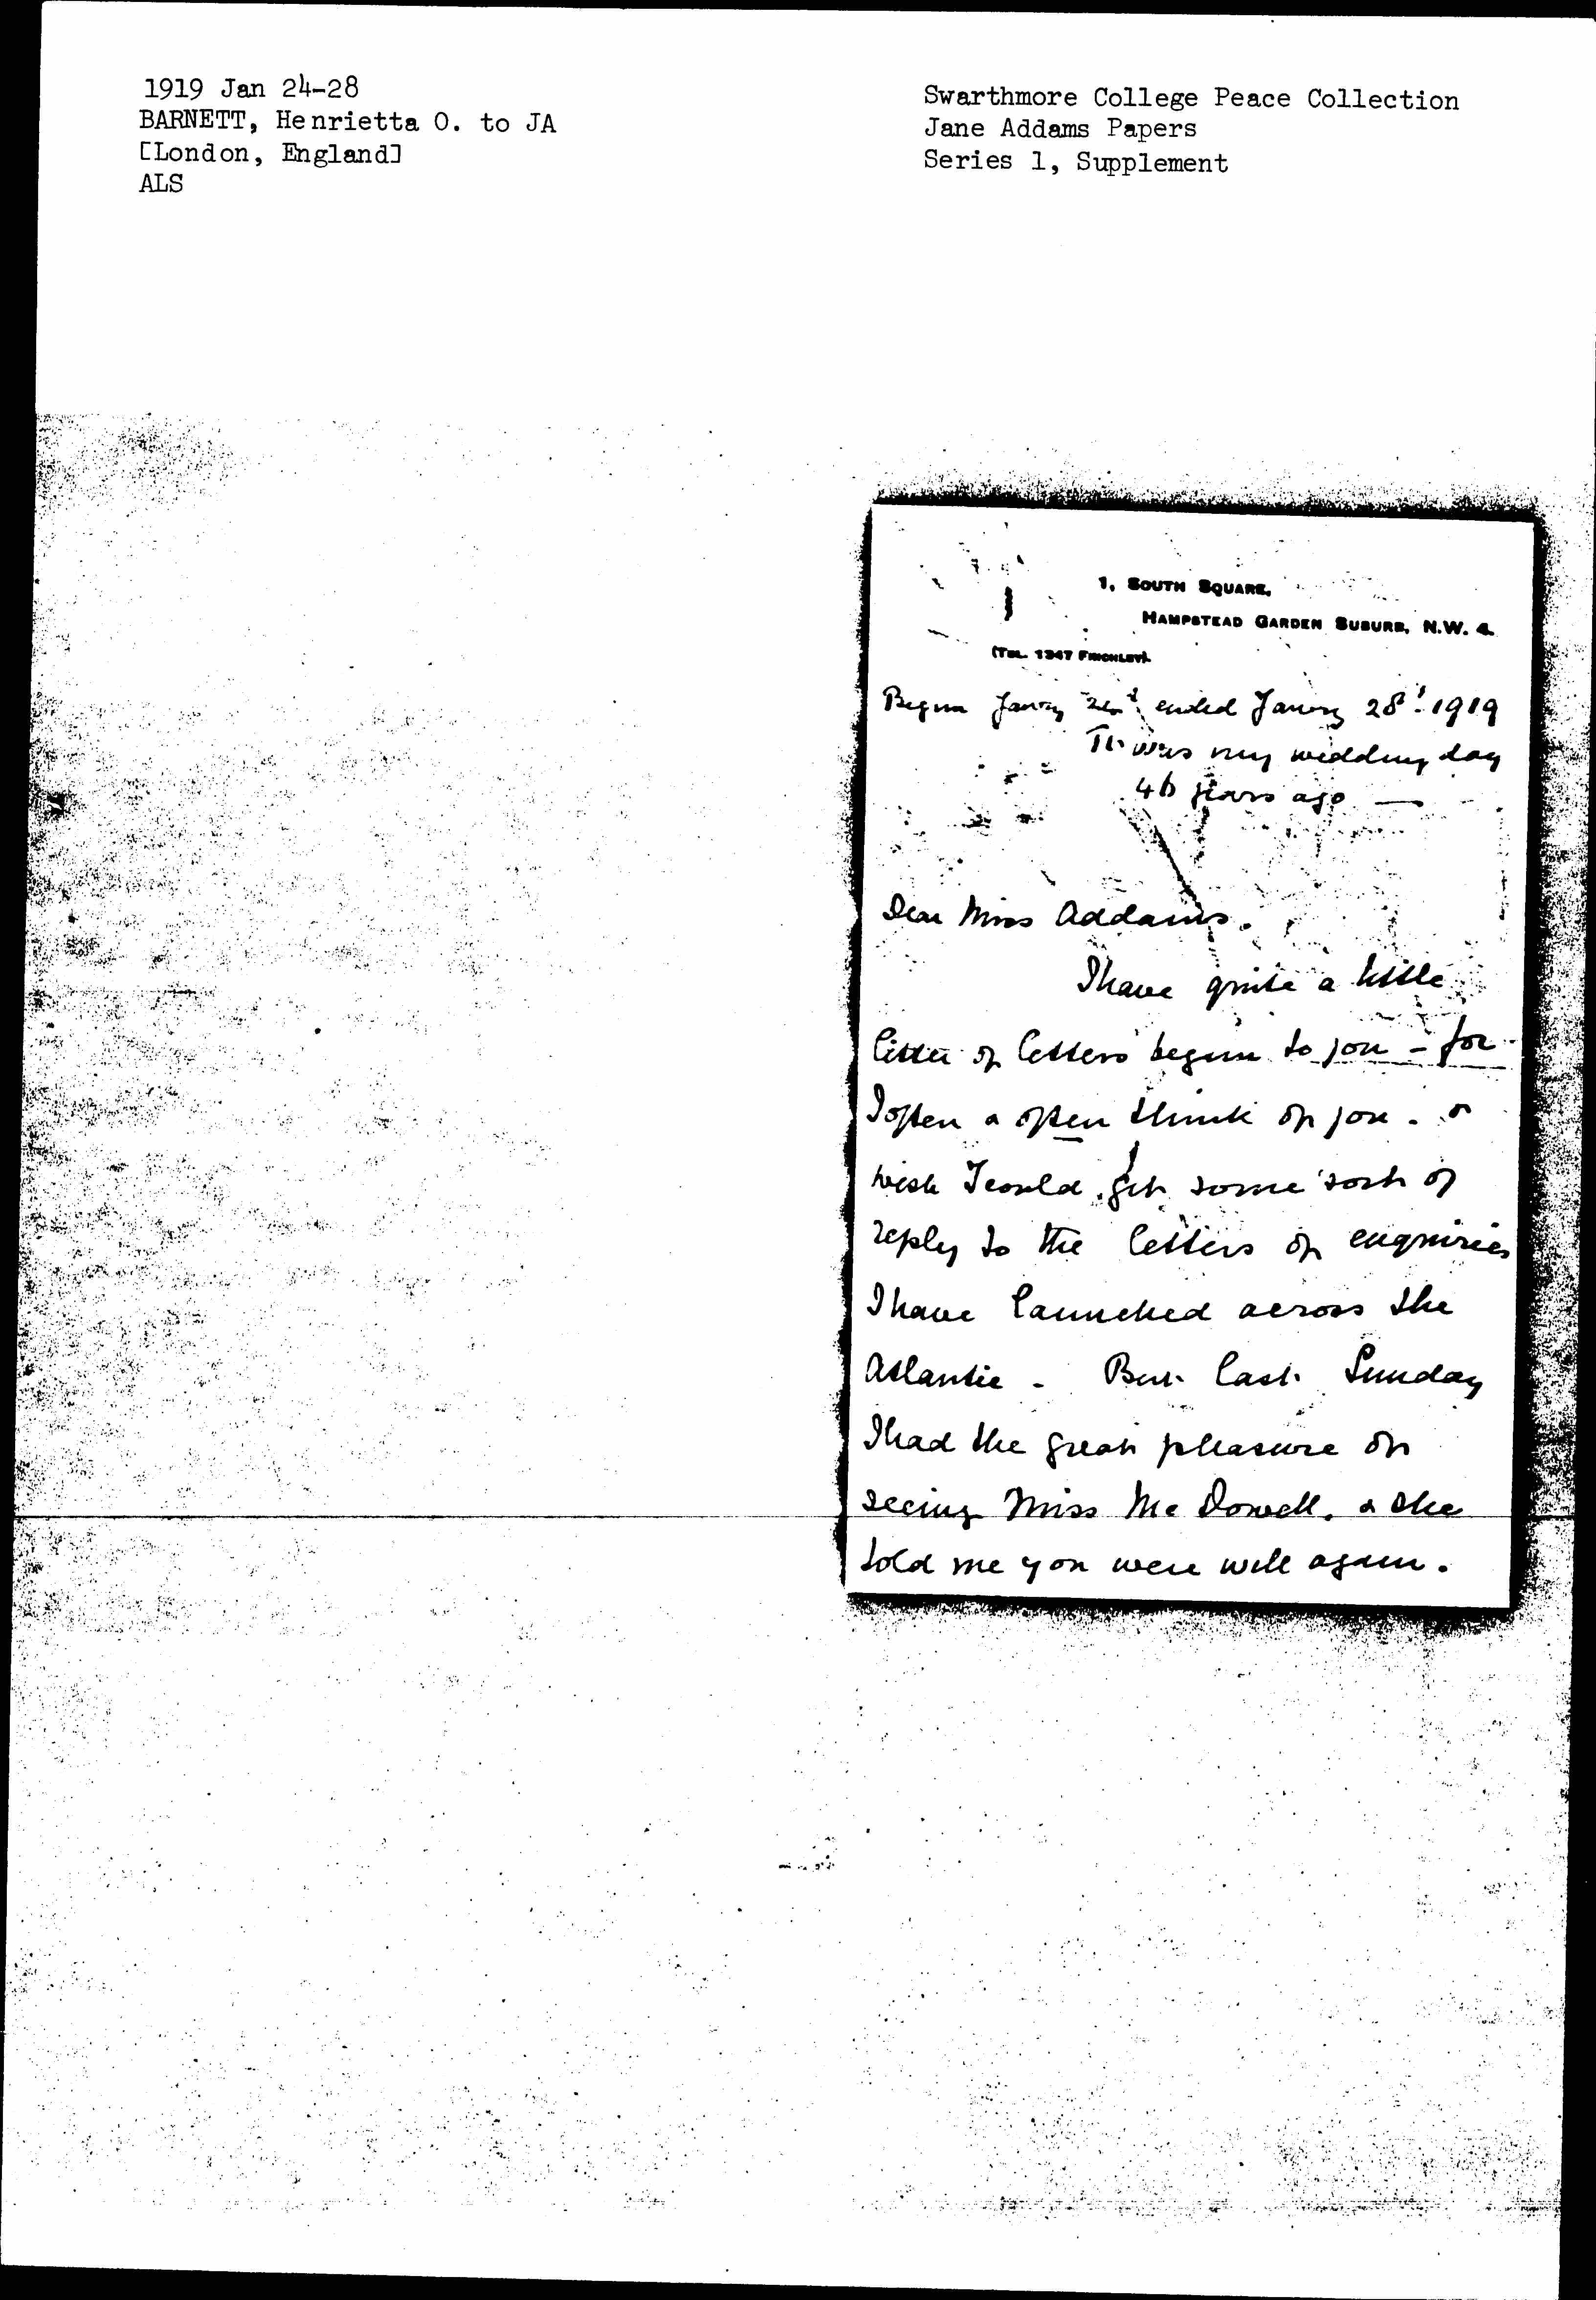 1919 Jan 24-28
BARNETT, Henrietta O. to JA
[London, England]
ALS
Swarthmore College Peace Collection
Jane Addams Papers
Series 1, Supplement
1, SOUTH SQUARE,
HAMPSTEAD GARDEN SUBURB, N.W. 4.
(TEL. 1347 FINCHLEY).
Begun Janry ended Janry 28th 1919
was my wedding day
46 years ago —
Dear Miss Addams.
I have quite a little
litter of letters begun to you - for
I often & often think of you - &
wish I could get some sort of
reply to the letters of enquiries
I have launched across the
Atlantic - But last Sunday
I had the great pleasure of
seeing Miss Mc Dowell. & she
told me you were well again.